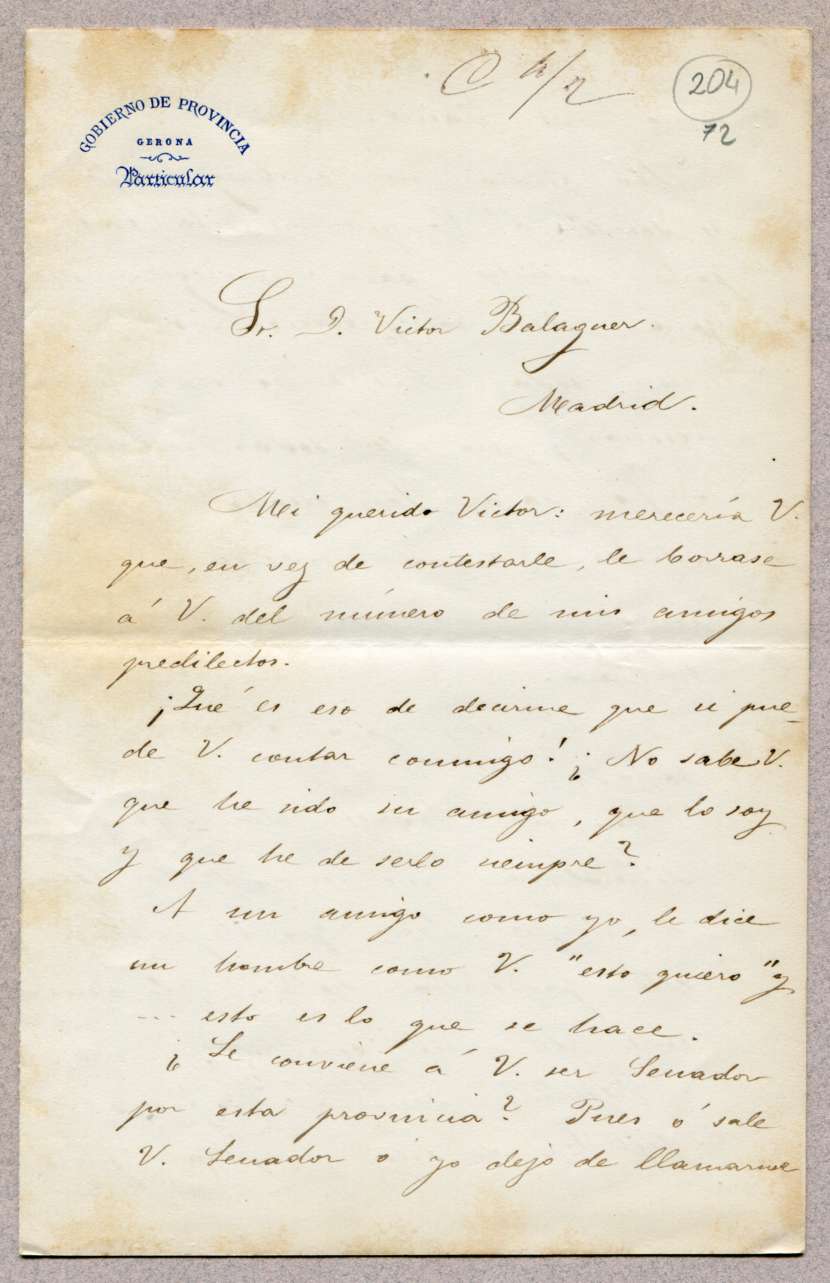 204
72
GOBIERNO DE PROVINCIA
GERONA
Particular
Sr. D. Victor Balaguer.
Madrid.
Mi querido Victor: merecería V.
que, en vez de contestarle, le borrase
á V. del número de mis amigos
predilectos.
¡Qué es eso de decirme que si pue-
de V. contar conmigo! ¿No sabe V.
que he sido su amigo, que lo soy
y que he de serlo siempre?
A un amigo como yo, le dice
un hombre como V. "esto quiero" y
... esto es lo que se hace.
¿Le conviene á V. ser Senador
por esta provincia? Pues ó sale
V. Senador ó yo dejo de llamarme